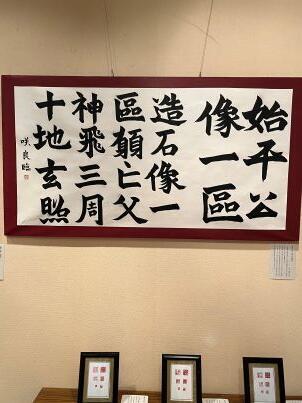 始平公
像一區
造石像一
區顛亡父
神飛三周
十地玄照
咲良臨